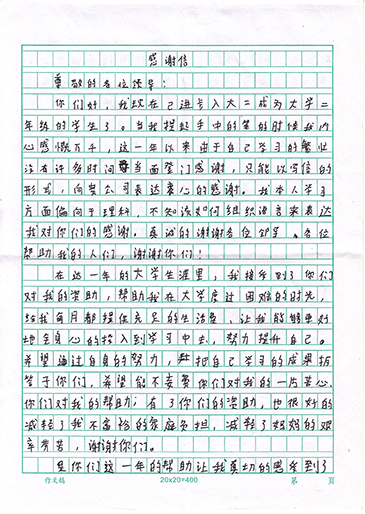 感谢信
尊敬的各位领导：
你们好，我现在已进步入大二成为大学二
年级的学生了。当我提起手中的笔的时候我内
心感慨万千，这一年以来由于自己学习的繁忙
没有许多时间当面登门感谢，只能以写信的
形式，向贵公司表达衷心的感谢。我本人学习
方面偏向于理科，不知该如何组织语言来表达
我对你们的感谢。真诚的谢谢各位领导。各位
帮助我的人们，谢谢你们！
在这一年的大学生涯里，我接受到了你们
对我的资助，帮助我在大学度过困难的时光，
给我每月都提供充足的生活费，让我能够更好
地全身心的投入到学习中去，努力提升自己。
希望通过自身的努力，把自己学习的成果报
答于你们，希望能不辜负你们对我的一片苦心，
你们对我的帮助；有了你们的资助，也很好的
减轻了我不富裕的家庭负担，减轻了妈妈的艰
辛劳苦，谢谢你们。
是你们这一年的帮助让我真切的感受到了
作文稿 20×20=400 第 页